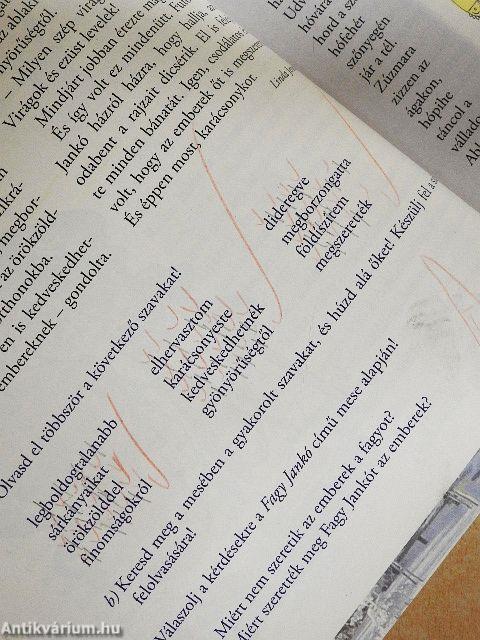 az ablaki
nyörűségről.
– Milyen szép virág
Virágok és ezüst levelek!
Mindjárt jobban érezte mag
És így volt ez mindenütt
Jankó házról házra, hogy hallja,
odabent a rajzait dicsérik. El is
te minden bánatát. Igen, csodálato
volt, hogy az emberek őt is megszere
És éppen most, karácsonykor.
megbor-
az örökzöld-
otthonokba.
en is kedveskedhet-
embereknek – gondolta.
Udv
hóvára
hord a sz
hófehér
szőnyegén
jár a tél.
Zúzmara
zizzen az
ágakon,
hópihe
táncol a
vállado
Olvasd el többször a következő szavakat!
legboldogtalanabb
sárkányaikat
örökzölddel
finomságokról
elhervasztom
karácsonyeste
kedveskedhetnék
gyönyörűségtől
dideregve
megborzongatta
földíszítem
megszerették
b) Keresd meg a mesében a gyakorolt szavakat, és húzd alá őket! Készülj fel a s
felolvasására!
Válaszolj a kérdésekre a Fagy Jankó című mese alapján!
Miért nem szeretik az emberek a fagyot?
Miért szerették meg Fagy Jankót az emberek?
Antikvárium.hu